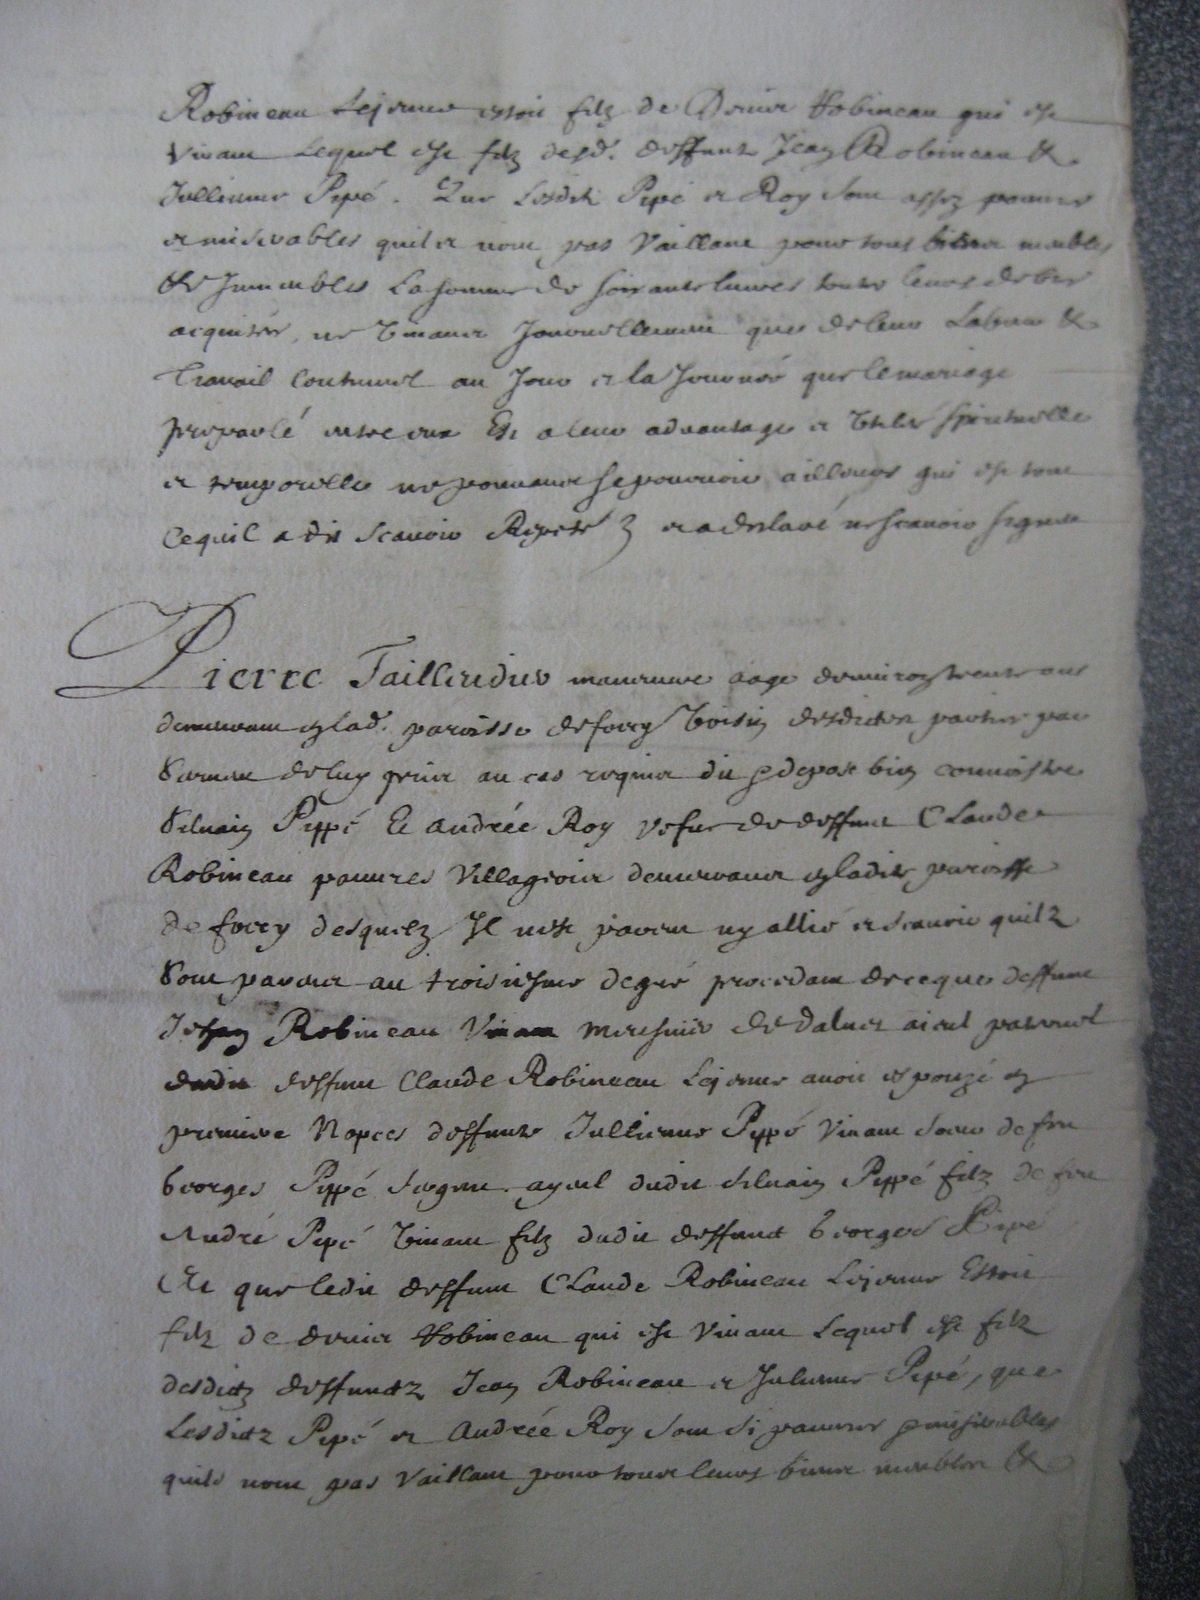 Robineau Lejeune estoit filz de Denier Robineau qui est
vivant Lequel est filz desd. deffunts Jean Robineau &
Jullienne Pipé. Que Lesdits Pipé et Roy sont assez pauvres
et miserables quilz nont pas vaillant pour tous biens meubles
& Immeubles La somme de soixante livres toutes leurs debtes
acquitées, ne vivants Journellement que de leur Labeur &
travail continuel au Jour et la Journée que le mariage
proparlé entre eux Est a leur advantage et utilité spirituelle
et temporelle ne pouvants se pourvoir ailleurs qui est tout
ce quil a dit scavoir Repeté et a declaré ne scavoir signer
Pierre Tailleudus manœuvre aagé denviron trente ans
demeurant en lad. paroisse de foecy voisin desdictes parties par
Serment de luy prins au cas requis dit & depose bien connoistre
Silvain Pippé Et Andrée Roy vefve de deffunt Claude
Robineau pauvres villageois demeurants en ladite paroisse
de foecy desquelz Il nest parent ny allié et scavoir quilz
Sont parens au troisiesme degré procedant de ce que deffunt
Jehan Robineau vivant de aieul paternel
dudit deffunt Claude Robineau Lejeune avoit espouzé en
premiere Nopces deffunte Jullienne Pippé vivant sœur de feu
Georges Pippé ayeul dudit Silvain Pippé filz de feu
André Pipé vivant filz dudit deffunct Georges Pipé
Et que ledit deffunt Claude Robineau Lejeune Estoit
filz de denier Robineau qui est vivant Lequel est filz
desditz deffunctz Jean Robineau et Julienne Pipé, que
Lesditz Pipé et Andrée Roy sont si pauvres & miserables
quils nont pas vaillant pour tous leurs biens meubles &